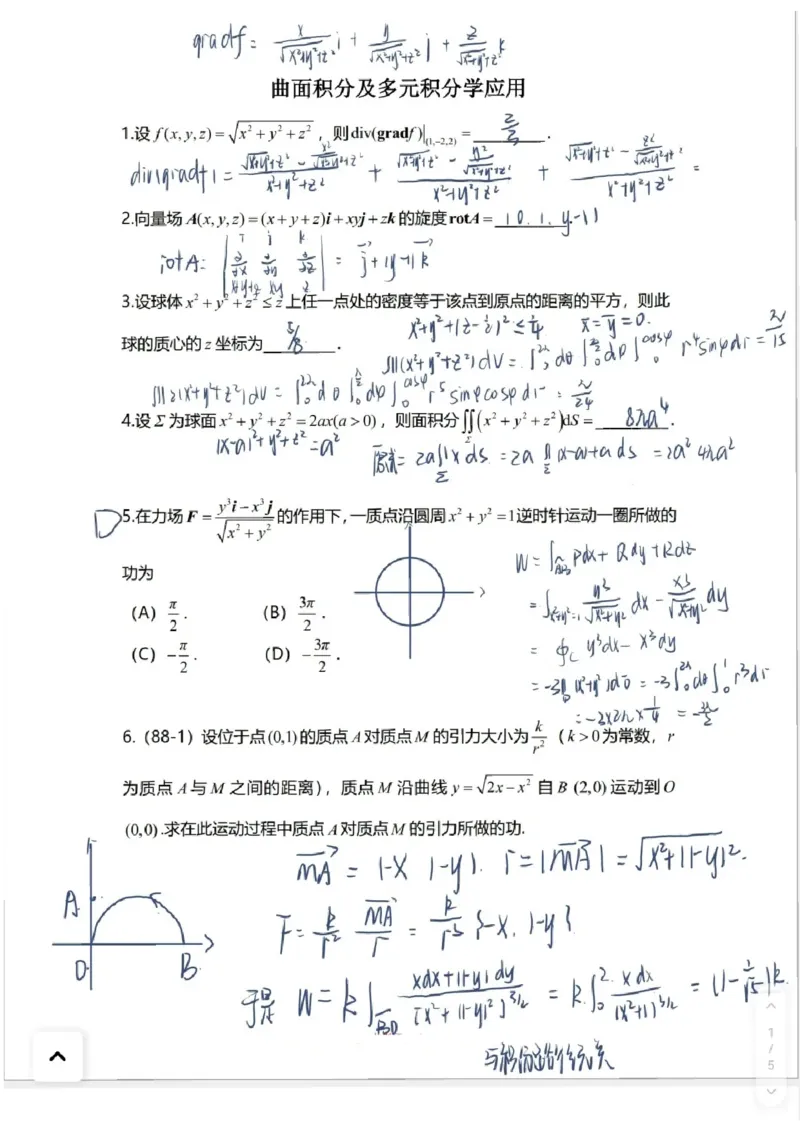 gradf = x/√(x²+y²+z²) i + y/√(x²+y²+z²) j + z/√(x²+y²+z²) k
曲面积分及多元积分学应用
1.设 f(x,y,z) = √(x²+y²+z²)，则div(gradf)|(1,-2,2) = 2/3 .
div(gradf) = (√(x²+y²+z²) - x²/√(x²+y²+z²))/(x²+y²+z²) + (√(x²+y²+z²) - y²/√(x²+y²+z²))/(x²+y²+z²) + (√(x²+y²+z²) - z²/√(x²+y²+z²))/(x²+y²+z²) =
2.向量场 A(x,y,z) = (x+y+z)i + xyj + zk 的旋度 rotA = (0, 1, y-1)
rotA = | i j k ; ∂/∂x ∂/∂y ∂/∂z ; x+y+z xy z | = j + (y-1)k
3.设球体 x²+y²+z² ≤ z 上任一点处的密度等于该点到原点的距离的平方，则此
球的质心的 z 坐标为 5/8 .
x²+y²+(z-½)² ≤ ¼ x̄ = ȳ = 0.
∭(x²+y²+z²)dV = ∫₀^2π dθ ∫₀^π/2 dφ ∫₀^cosφ r⁴sinφdr = π/15
∭z(x²+y²+z²)dV = ∫₀^2π dθ ∫₀^π/2 dφ ∫₀^cosφ r⁵sinφcosφdr = π/24
4.设 Σ 为球面 x²+y²+z² = 2ax(a>0)，则面积分 ∬Σ(x²+y²+z²)dS = 8πa⁴ .
(x-a)²+y²+z² = a²
原式 = 2a∬Σ x ds = 2a∬Σ x-a+a ds = 2a² 4πa²
D 5.在力场 F = (y³i - x³j)/√(x²+y²) 的作用下，一质点沿圆周 x²+y²=1 逆时针运动一圈所做的
功为
(A) π/2 . (B) 3π/2 .
(C) -π/2 . (D) -3π/2 .
W = ∫AB Pdx + Qdy + Rdz
= ∫x²+y²=1 y³/√(x²+y²) dx - x³/√(x²+y²) dy
= ∮c y³dx - x³dy
= -3∬(x²+y²)dσ = -3∫₀^2π dθ ∫₀^1 r³dr
= -3×2π×¼ = -3π/2
6.（88-1）设位于点(0,1)的质点 A 对质点 M 的引力大小为 k/r²（k>0为常数，r
为质点 A 与 M 之间的距离），质点 M 沿曲线 y = √(2x-x²) 自 B (2,0) 运动到 O
(0,0) .求在此运动过程中质点 A 对质点 M 的引力所做的功.
MA = (-x, 1-y). r = |MA| = √(x²+(1-y)²).
A
O B
F = k/r² MA/r = k/r³ {-x, 1-y}
于是 W = k∫BO (xdx+(1-y)dy)/[x²+(1-y)²]^3/2 = k∫₀² xdx/(x²+1)^3/2 = (1-1/√5)k
与积分路径无关
1
/
5